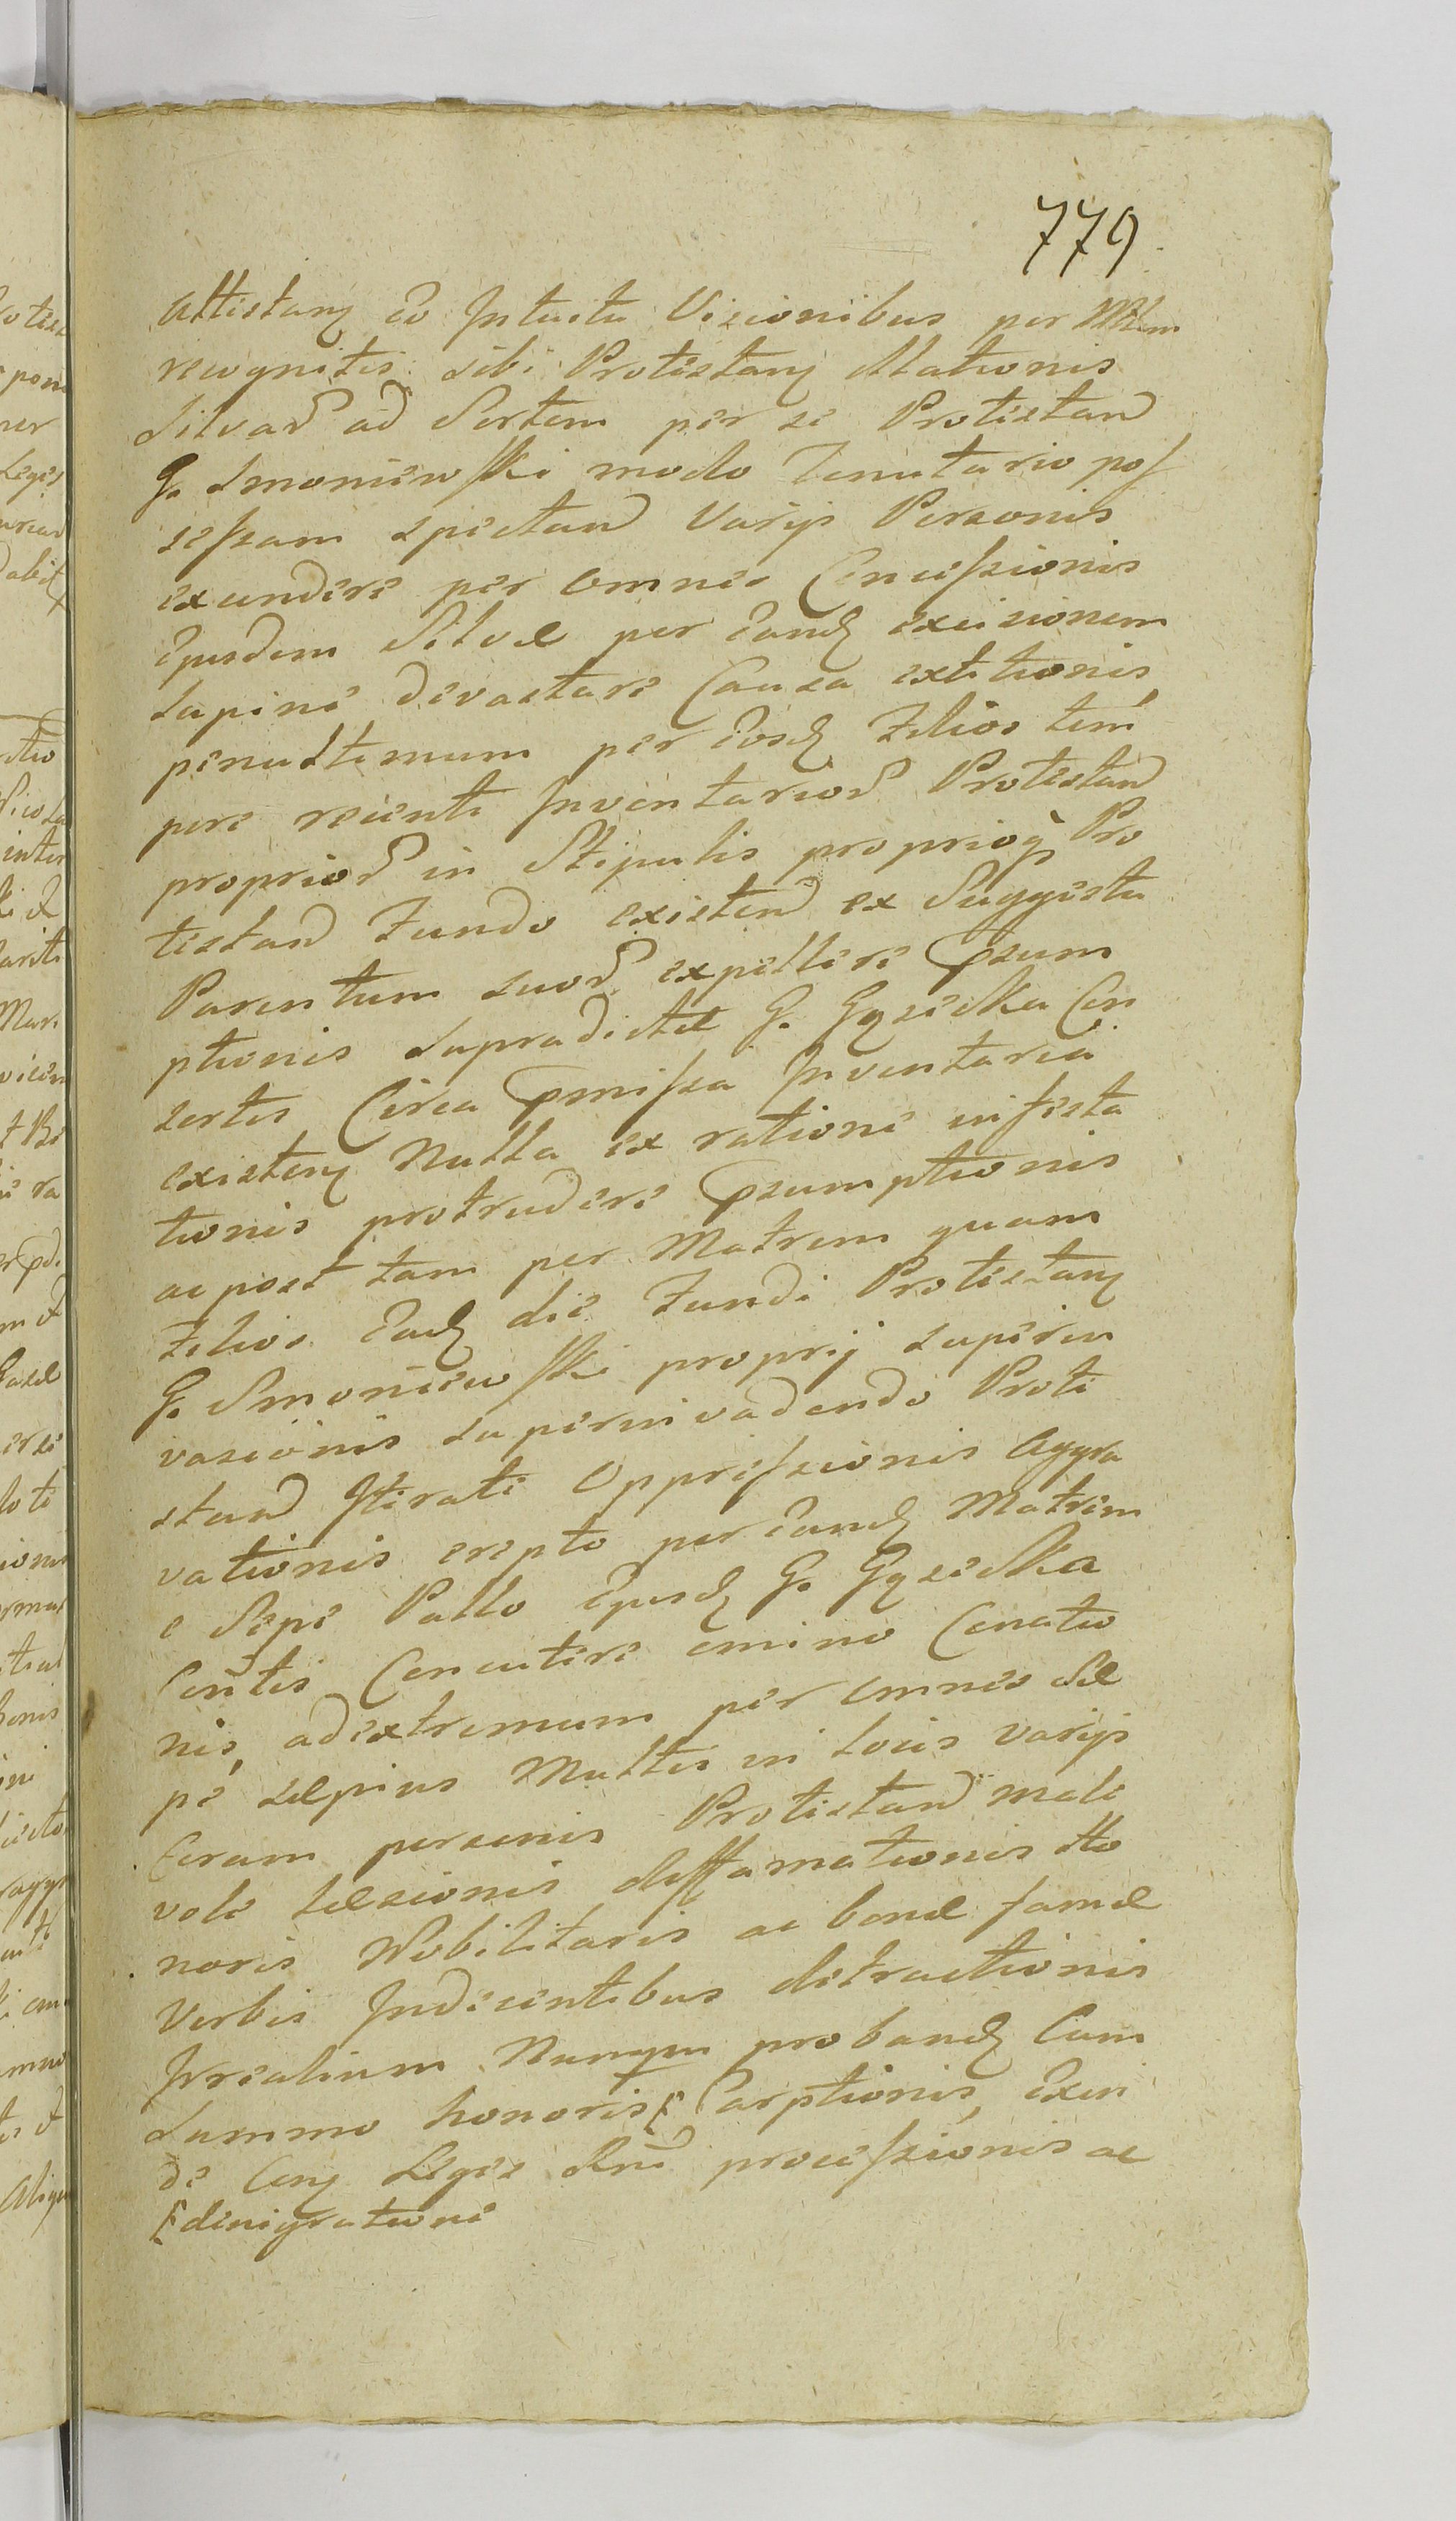 779
Attestanꝫ eo Intuitu Visionibus per Mtrem
recognitis sibi Protestanꝫ Illationis
Silvar ad Sortem per se Protestand
G. Smoniewski modo Tenutario pos
sessam spectand Varijs Personis
excindere per omnes Concessionis
Ejusdem Silvæ per Eandꝫ excisionem
Supine devastare Causa extitionis
penultimum per Eosdꝫ Filios tem
pore recenti Inventarior Protestand
proprior in Stipulis proprioqꝫ Pro
testand Fundo existend ex Suggestu
Parentum suor expellere Præsum
ptionis Supradictæ G. Gąsecka Con
sortis Circa Præmissa Inventaria
existenꝫ Nulla ex ratione infesta
tionis protrudere Præsumptionis
ac post tam per Matrem quam
Filios Eadꝫ die Fundi Protestanꝫ
G. Smoniewski proprij superin
vasionis superinvadendo Prote
stand Iterate Oppressionis Aggra
vationis erepto per Eandꝫ Matrem
e Sepe Pallo Ejusdꝫ G. Gąsecka
Contis Concutere omino Conatio
nis, ad extremum per omnes Sæ
pe sæpius Multis in locis varijs
Coram personis Protestand male
vole læsionis diffamationis Ho
noris Nobilitaris ac bonæ famæ
Verbis Indecentibus detractionis
Irrealium Nunqm probandꝫ Cum
Summo honoris Carptionis, Exin
de Conꝫ Leges Rni processionis ac
denigratione